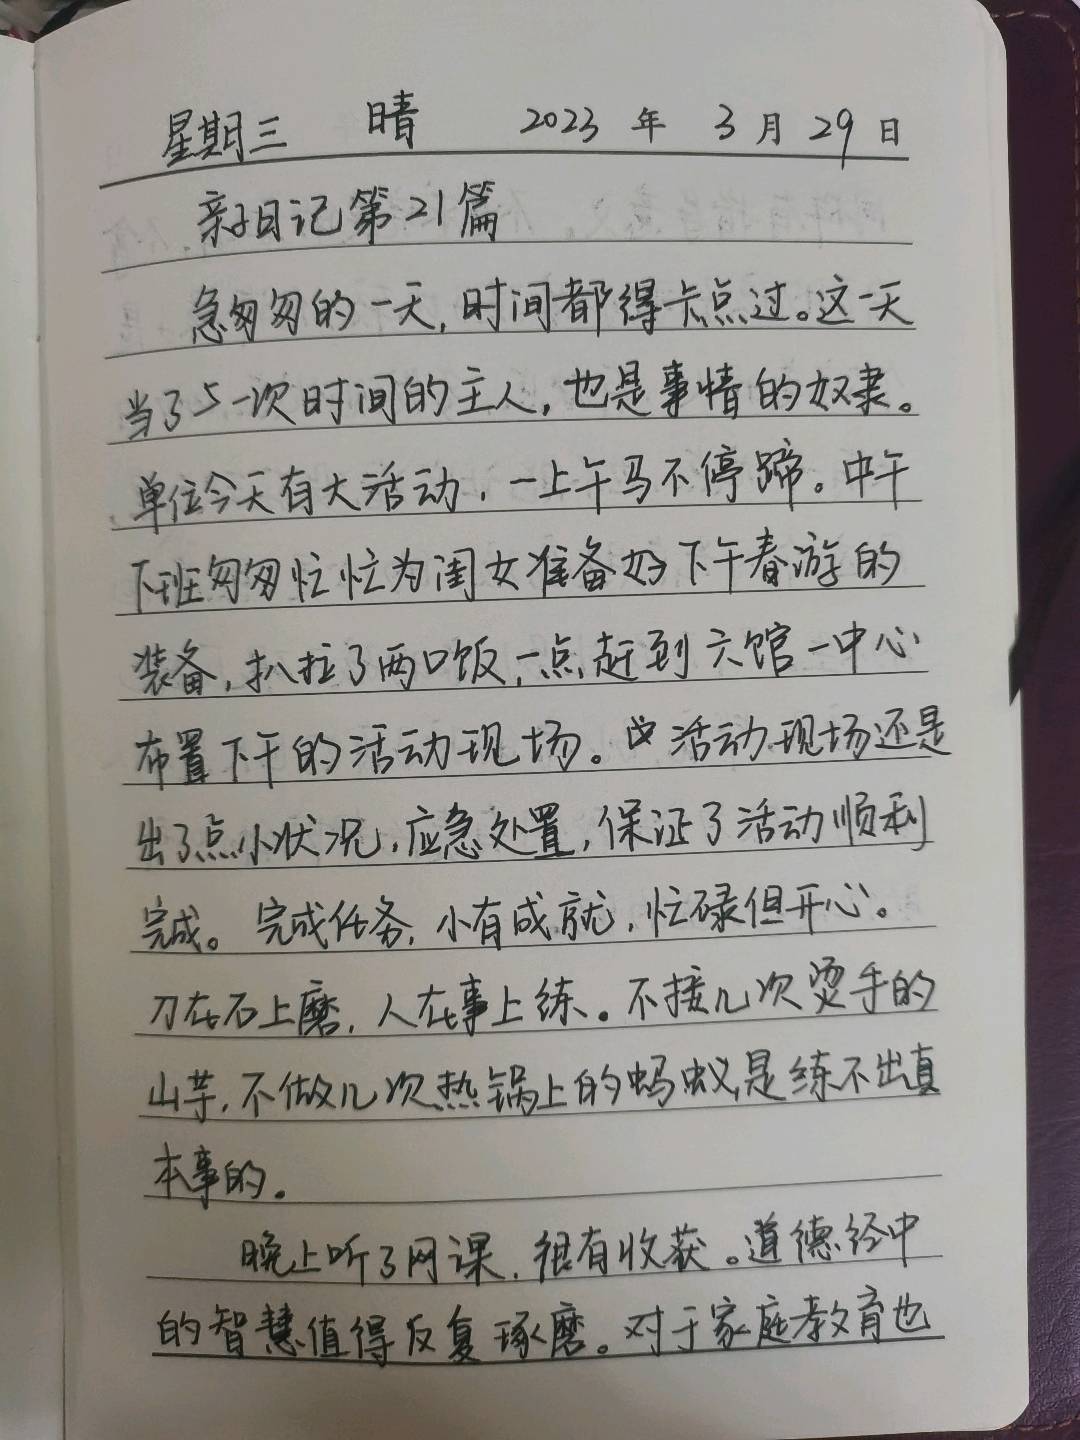 星期三 晴 2023 年 3 月 29 日
亲子日记第21篇
急匆匆的一天,时间都得卡点过。这一天
当了一次时间的主人,也是事情的奴隶。
单位今天有大活动,一上午马不停蹄。中午
下班匆匆忙忙为闺女准备好下午春游的
装备,扒拉了两口饭,一点赶到六馆一中心
布置下午的活动现场。活动现场还是
出了点小状况,应急处置,保证了活动顺利
完成。完成任务,小有成就,忙碌但开心。
刀在石上磨,人在事上练。不接几次烫手的
山芋,不做几次热锅上的蚂蚁,是练不出真
本事的。
晚上听了网课,很有收获。道德经中
的智慧值得反复琢磨。对于家庭教育也